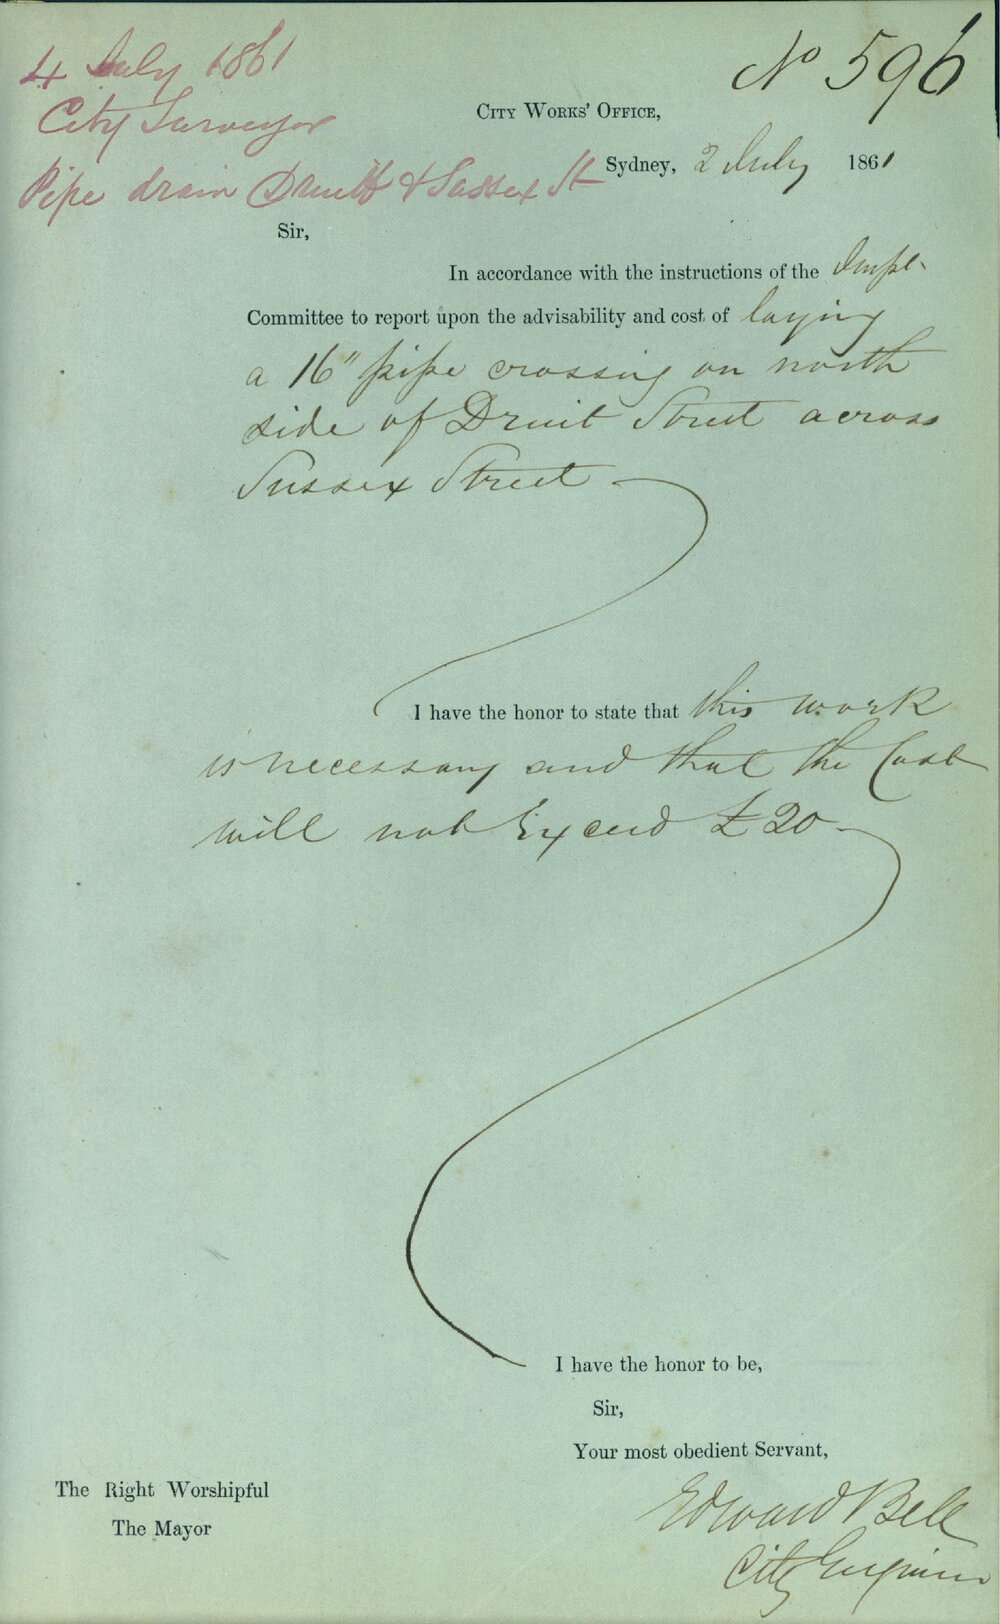 4 July 1861
City Surveyor
Pipe drain Druitt & Sussex St
No 596
CITY WORKS' OFFICE,
Sydney, 2 July 1861
Sir,
In accordance with the instructions of the Impt.
Committee to report upon the advisability and cost of laying
a 16" pipe crossing on north
side of Druit Street across
Sussex Street
I have the honor to state that this work
is necessary and that the Cost
will not Exceed £20
I have the honor to be,
Sir,
Your most obedient Servant,
Edward Bell
City Engineer
The Right Worshipful
The Mayor